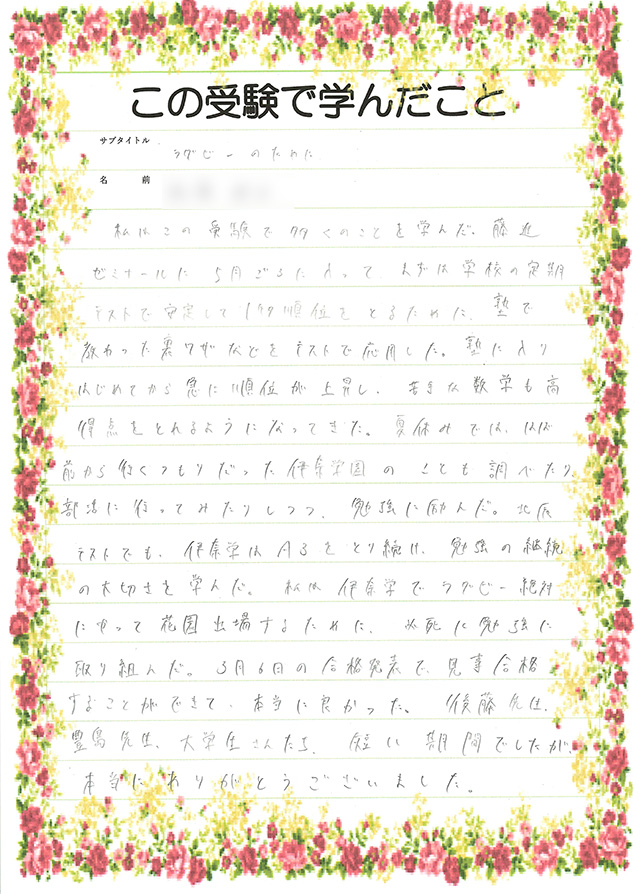 この受験で学んだこと
サブタイトル
ラグビーのために
名前
私はこの受験で多くのことを学んだ。藤進
ゼミナールに5月ごろに入って、まずは学校の定期
テストで安定して1ケタ順位をとるために、塾で
教わった裏ワザなどをテストで応用した。塾に入り
はじめてから急に順位が上昇し、苦手な数学も高
得点をとれるようになってきた。夏休みでは、
前から行くつもりだった伊奈学園のことも調べたり、
部活に行ってみたりしつつ、勉強に励んだ。北辰
テストでも、伊奈学はA3をとり続け、勉強の継続
の大切さを学んだ。私は伊奈学でラグビー絶対
にやって花園出場するために、必死に勉強に
取り組んだ。3月6日の合格発表で、見事合格
することができて、本当に良かった。後藤先生、
豊島先生、大学生さんたち、短い期間でしたが、
本当にありがとうございました。